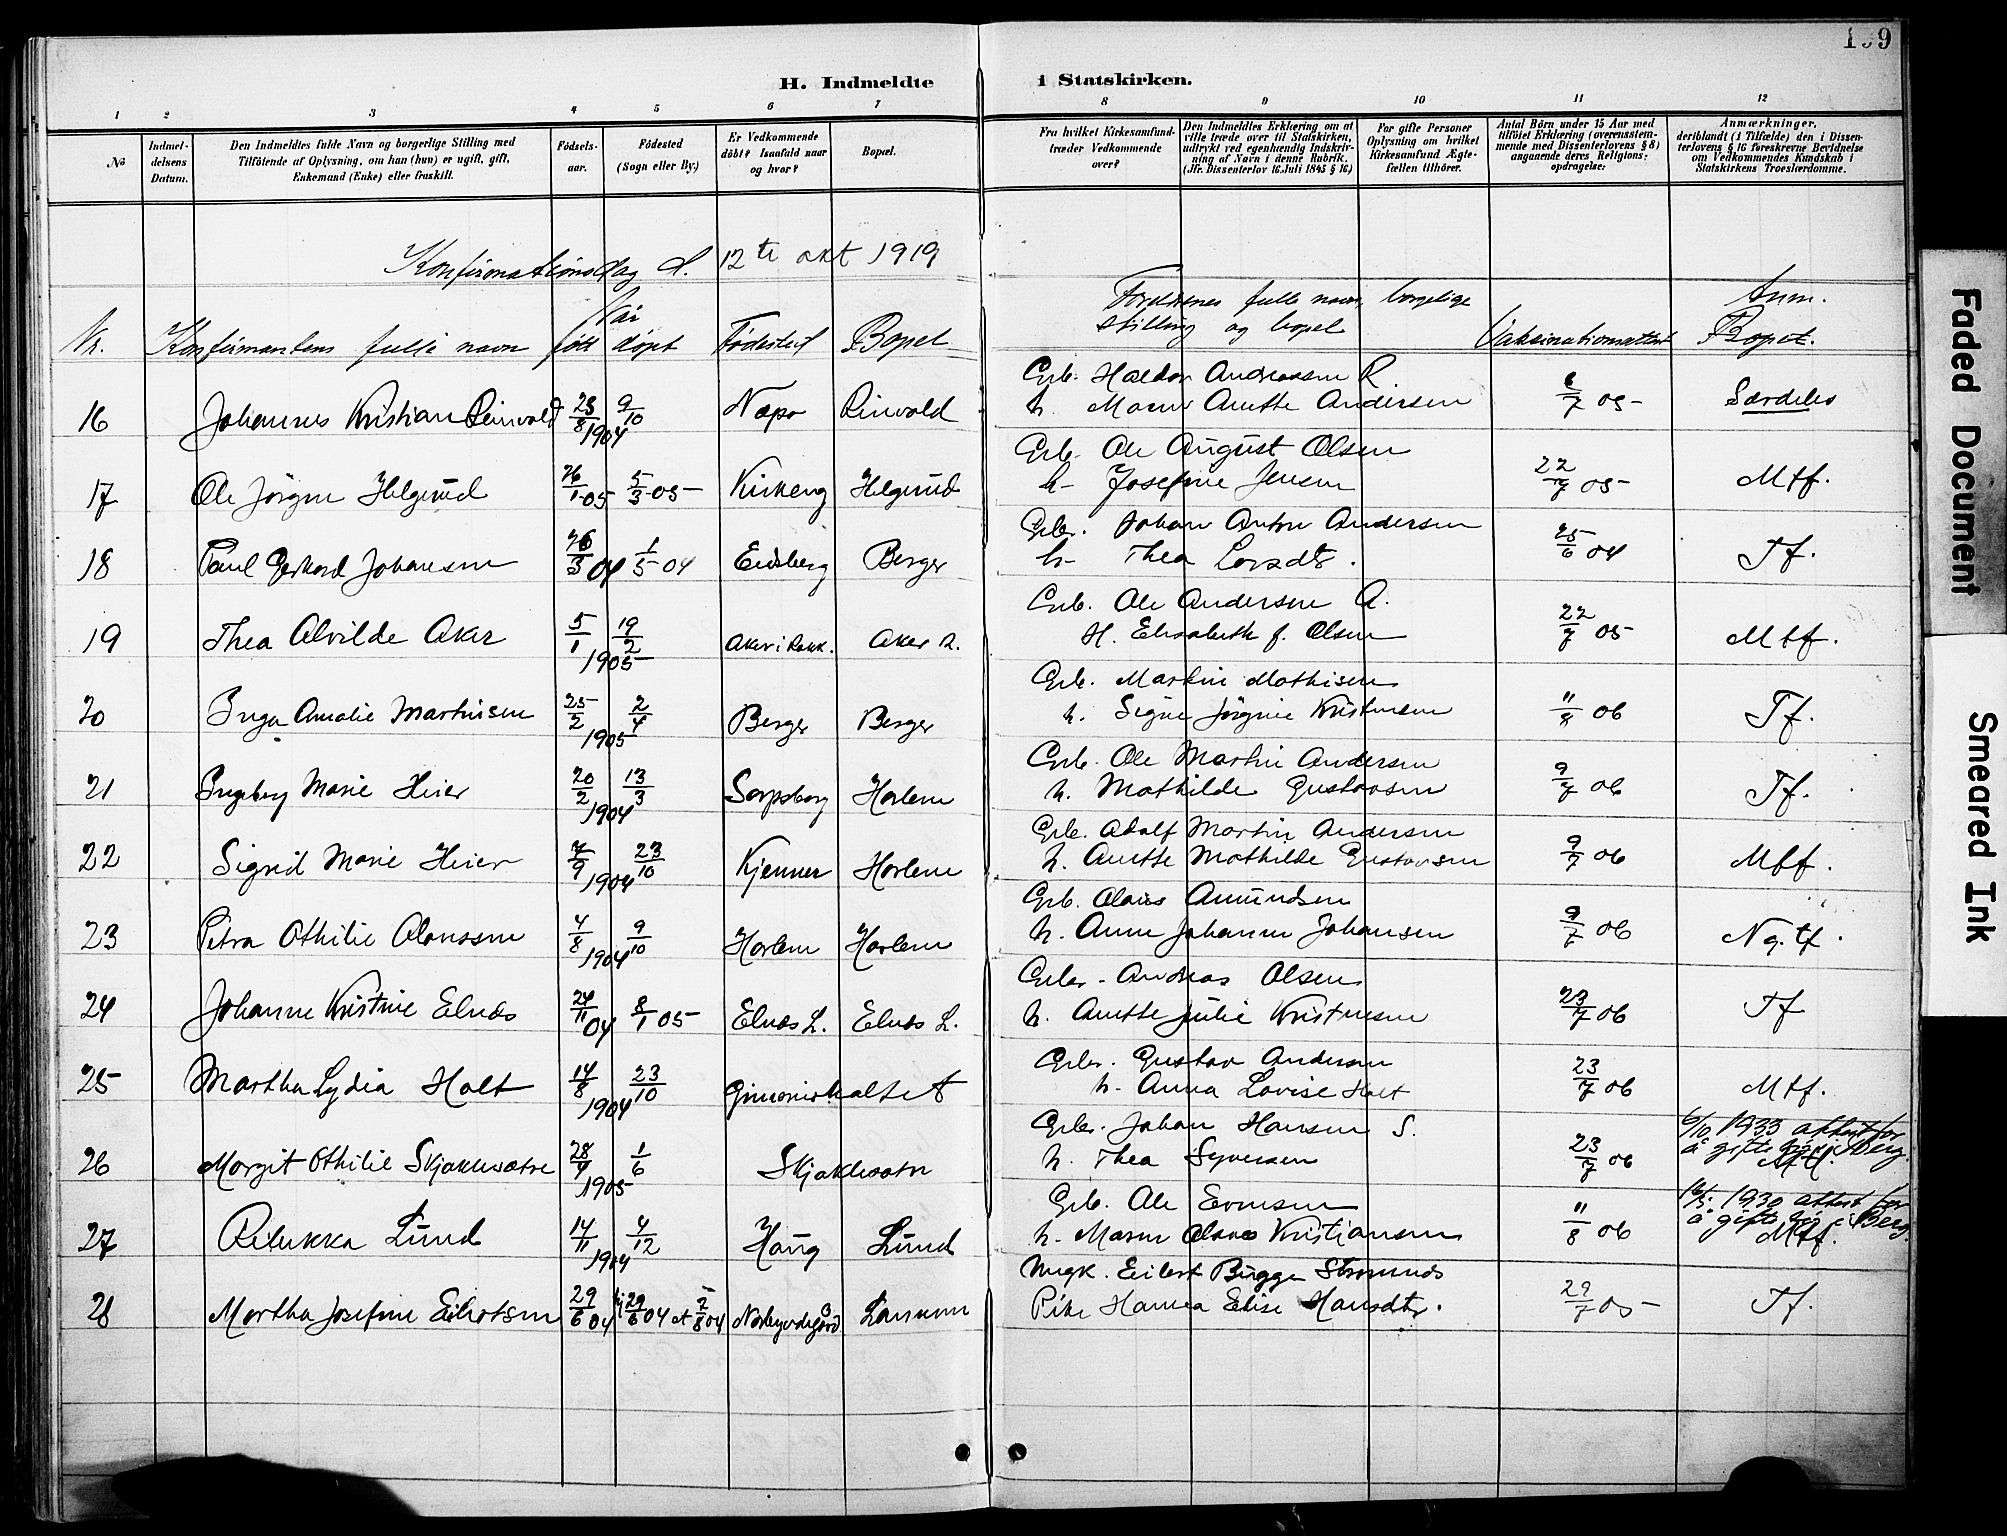 199
H. Indmeldte i Statskirken.
1 2 3 4 5 6 7 8 9 10 11 12
No
Indmel-
delsens
Datum.
Den Indmeldtes fulde Navn og borgerlige Stilling med
Tilföiende af Oplysning, om han (hun) er ugift, gift,
Enkemand (Enke) eller fraskilt.
Födsels-
aar.
Födested
(Sogn eller By.)
Er Vedkommende
döbt? Isaafald naar
og hvor?
Bopæl.
Fra hvilket Kirkesamfund-
træder Vedkommende
over?
Den Indmeldtes Erklæring om at
ville træde over til Statskirken,
udtrykt ved egenhændig Indskriv-
ning af Navn i denne Rubrik.
(Jfr. Dissenterlov 16. Juli 1845 § 16)
For gifte Personer
Oplysning om hvilket
Kirkesamfund Ægte-
fællen tilhörer.
Antal Börn under 15 Aar med
tilföiet Erklæring (overensstem-
mende med Dissenterlovens § 8)
angaaende deres Religions:
opdragelse:
Anmærkninger,
deriblandt (i Tilfælde) den i Dissen-
terlovens § 16 foreskrevne Bevidnelse
om Vedkommendes Kundskab i
Statskirkens Troeslærdomme.
Konfirmationsdag d. 12te okt 1919
Nr. Konfirmantens fulle navn født døpt Fødested Bopel
Foreldrenes fulle navn, borgelige
stilling og bopel
Vaksinationsattest
Anm.
Bopel.
16 Johannes Kristian Reinvold 23/8 9/10 1904 Næpo Rinvold
Grb. Haldor Andreassen R
h. Maren Anette Andersen 6/7 05 Særdeles
17 Ole Jørgen Helgerud 26/1 05 5/3 05 Kirkeng Helgerud
Grb. Ole August Olsen
h. Josefine Jensen 22/7 05 Mtf.
18 Paul Gerhard Johansen 26/3 04 1/5 04 Eidsberg Berger
Grbr. Johan Anton Andersen
h. Thea Larsdtr. 25/6 04 Tf.
19 Thea Alvilde Aker 5/1 19/2 1905 Aker i Rakk. Aker R.
Grb. Ole Andersen A.
H. Elisabeth f. Olsen 22/7 05 Mtf.
20 Inga Amalie Martinsen 25/2 2/4 1905 Berger Berger
Grb. Martin Mathisen
h. Signe Jørgine Kristensen 11/8 06 Tf.
21 Ingeborg Marie Heier 20/2 13/3 1904 Sarpsborg Harlem
Grb. Ole Martin Andersen
h. Mathilde Gustavsen 9/7 06 Tf.
22 Sigrid Marie Heier 7/9 23/10 1904 Kjenner Harlem
Grb. Adolf Martin Andersen
h. Anette Mathilde Gustavsen 9/7 06 Mtf.
23 Petra Othilie Olaussen 4/8 9/10 1904 Harlem Harlem
Grb. Olaus Amundsen
h. Anne Johanne Johansen 9/7 06 Ng. tf.
24 Johanne Kristine Elnæs 24/11 04 8/1 05 Elnæs L. Elnæs L.
Grbr. Andreas Olsen
h. Anette Julie Kristensen 23/7 06 Tf
25 Martha Lydia Holt 14/8 23/10 1904
Grbr. Gustav Andersen
h. Anna Lovise Holt 23/7 06 Mtf.
26 Margit Othilie Skjaklesætre 28/4 1/6 1905 Skjaklesætre
Grbr. Johan Hansen S.
h. Thea Syversen 23/7 06
6/10 1933 attest for
å gifte sig i Berg.
27 Rebekka Lund 14/11 4/12 1904 Haug Lund
Grb. Ole Evensen
h. Maren Olava Kristiansen 11/8 06
16/5 1930 attest for
å gifte sig i Berg.
Mtf.
28 Martha Josefine Eilertsen 29/6 04 hj 29/6 04 st 7/8 04
Eilert Bugge
Pike Hanna Elise Hansdtr. 29/7 05 Tf.
Faded Document
Smeared Ink